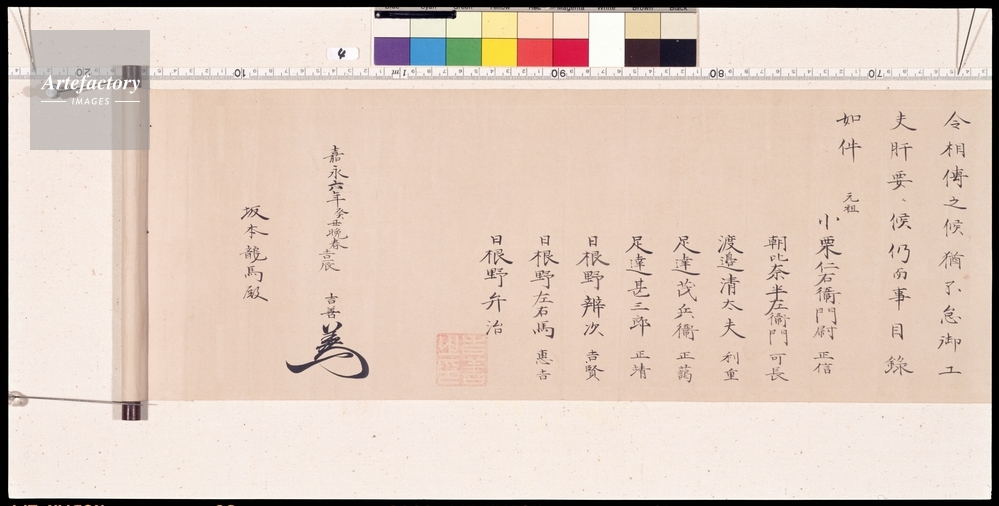 令相傳之候猶不怠御工
夫肝要ニ候仍而事目錄
如件
元祖
小栗仁右衛門尉 正信
朝比奈半左衛門 可長
渡邉清太夫 利重
足達茂兵衛 正藹
足達甚三郎 正靖
日根野辨次 吉賢
日根野左右馬 惠吉
日根野弁治
嘉永六年癸丑晩春吉辰 吉善
坂本龍馬殿
Artefactory
IMAGES
4
Blue Cyan Green Yellow Red Magenta White Brown Black
20
10
1m
90
80
70